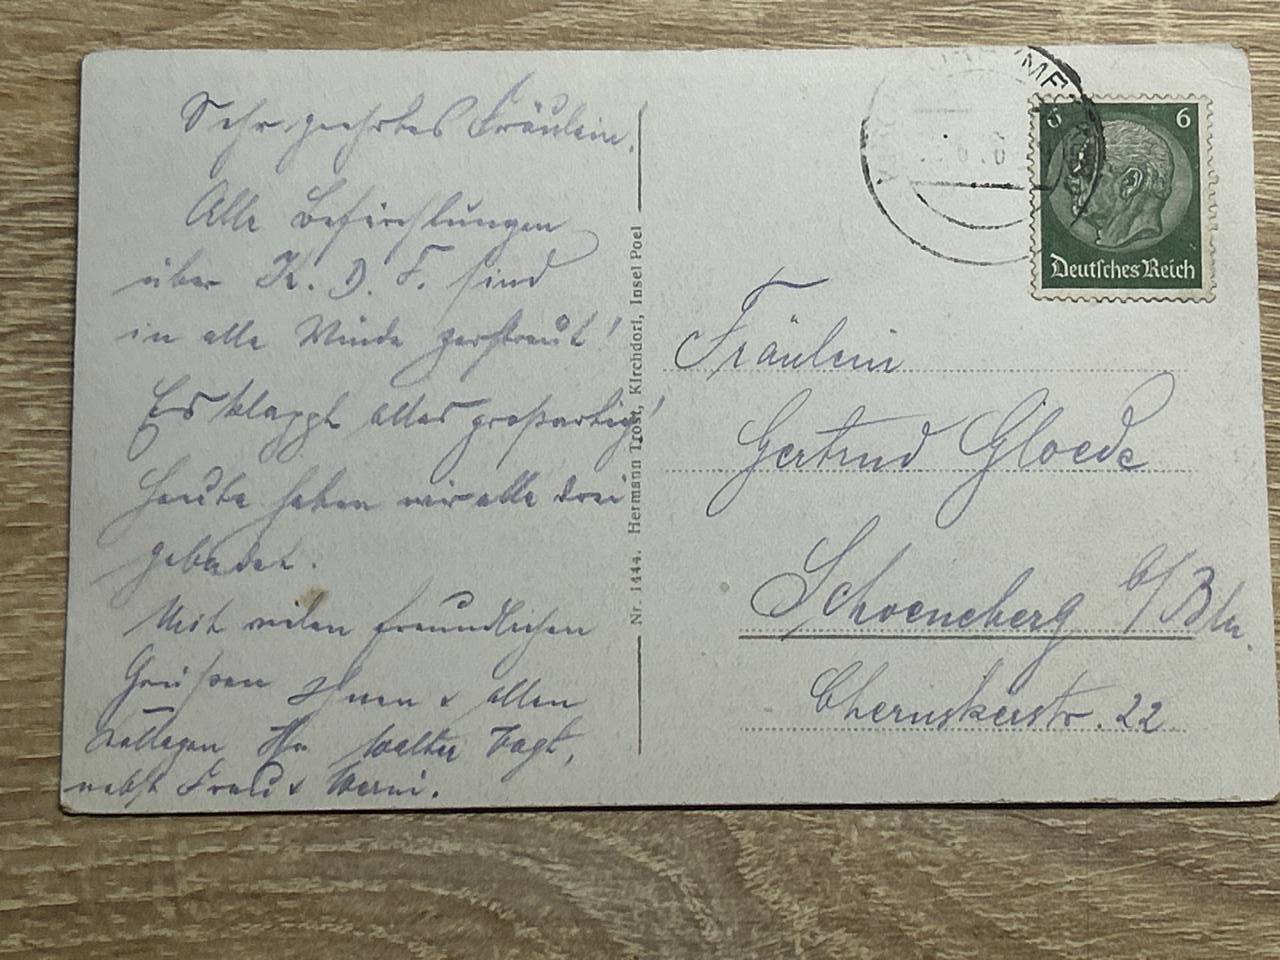 Sehr geehrtes Fräulein.
Alle Befürchtungen
über K. D. F. sind
in alle Winde zerstreut!
Es klappt alles großartig!
Heute haben wir alle drei
gebadet.
Mit vielen freundlichen
Grüßen Ihnen & allen
Kollegen Ihr Walter Vogt,
nebst Frau & Werni.
Nr. 1444. Hermann Trost, Kirchdorf, Insel Poel
6 6
Deutsches Reich
Fräulein
Gertrud Gloede
Schoeneberg b/Bln.
Cheruskerstr. 22